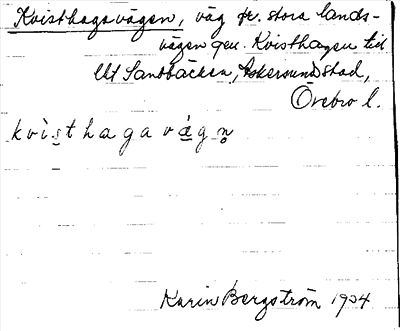 Kvisthagavägen, väg fr. stora lands-
vägen gm. Kvisthagen till
Sandbäcken, Askersund stad,
Örebro l.
kvìsthagavä́gn̥
Karin Bergström 1934